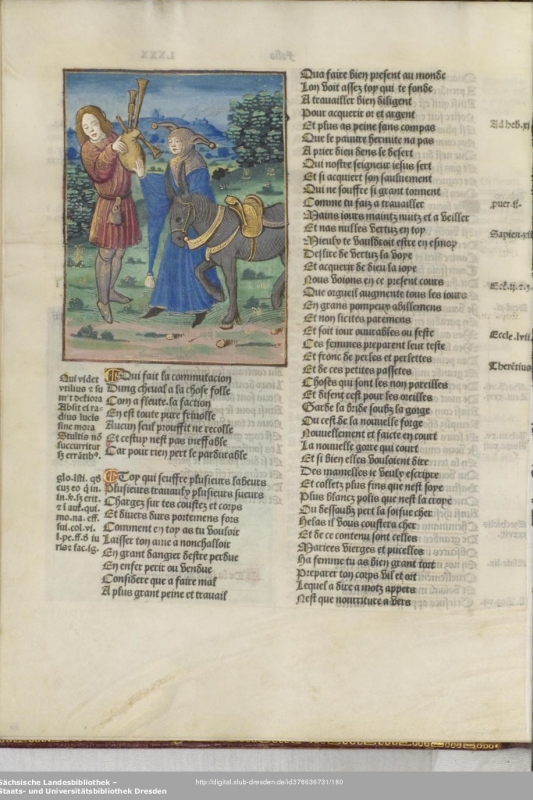 Qui videt
Stultio nō
succurritur
Qui fait la commutacion
Dung cheual a la chose folle
Com a fleute.la faction
En est toute pure friuolle
Aucun seul prouffit ne recolle
Et cestuy nest pas ineffable
Car pour rien pert le pardurable
Toy qui seuffre plusieurs labeurs
Plusieurs trauaulx plusieurs sueurs
Chargez sur tes coustez et corps
Et diuers durs portemens fors
Comment en toy as tu vouloir
Laisser ton ame a nonchalloir
En grant dangier destre perdue
En enfer perir ou vendue
Considere que a faire mal
A plus grant peine et trauail
Qua faire bien present au monde
Lon voit assez toy qui te fonde
A trauailler bien diligent
Pour acquerir or et argent
Et plus as peine sans compas
Que le pauure hermite na pas
A prier dieu dens le desert
Qui nostre seigneur iesus sert
Et si acquiert son sauluement
Qui ne souffre si grant torment
Comme tu faiz a trauailler
Mains iours maintz nuitz et a veiller
Et nas nulles vertuz en toy
Mieulx te vauldroit estre en esmoy
Desire de vertuz la voye
Et acquerir de dieu la ioye
Nous voions en ce present cours
Que orgueil augmente tous les iours
En grans pompeux abillemens
Et non licites paremens
Et soit iour ouurables ou feste
Ces femmes preparent leur teste
Et fronc de perles et perlettes
Et de ces petites passetes
Choses qui sont les non pareilles
Et disent cest pour les oreilles
Garde la bride soubz la gorge
Ou cest de la nouuelle forge
Nouuellement et faicte en court
La nouuelle gorre qui court
Et si bien elles vouloient dire
Des mamelles ie veulx escripre
Et colletz plus fins que nest soye
Plus blancz polis que nest la croye
Du dessoubz pert la soifue cher
Helas il vous coustera cher
Et de ce contenu sont celles
Matrices vierges et pucelles
Ha femme tu as bien grant tort
Preparer ton corps vil et ort
Lequel a dire a motz appers
Nest que nourriture a vers
Ad heb.xi
Sapien.
Eccle.lvii.
Sächsische Landesbibliothek –
Staats- und Universitätsbibliothek Dresden
http://digital.slub-dresden.de/id378636731/180